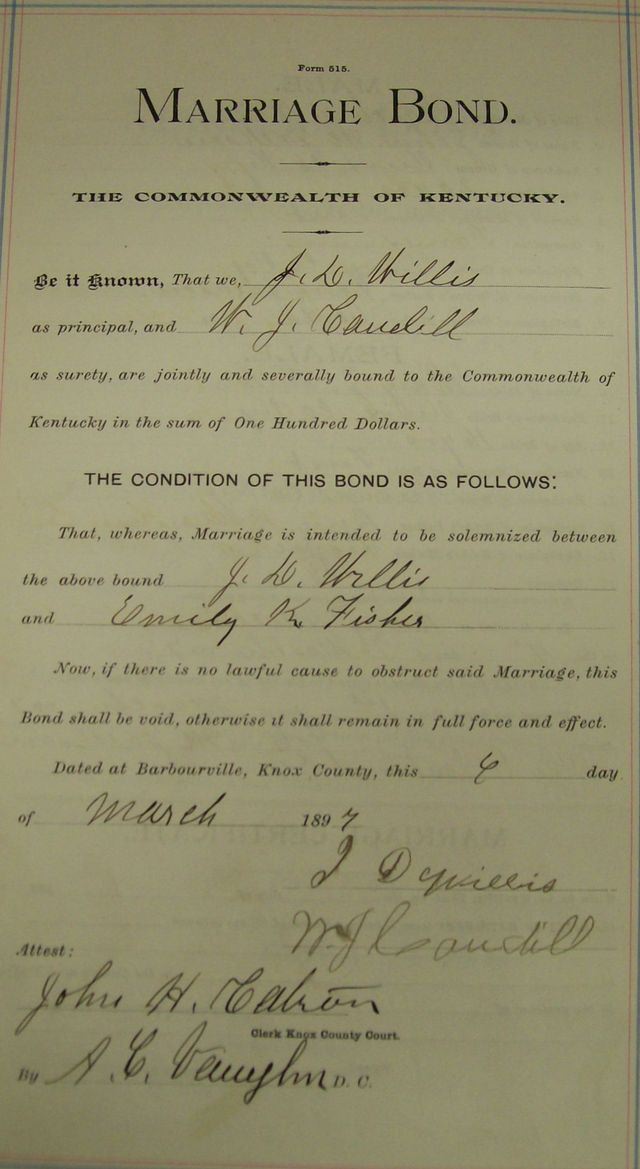 Form 515.
MARRIAGE BOND.
THE COMMONWEALTH OF KENTUCKY.
Be it Known, That we, J. D. Willis
as principal, and W. J. Caudill
as surety, are jointly and severally bound to the Commonwealth of
Kentucky in the sum of One Hundred Dollars.
THE CONDITION OF THIS BOND IS AS FOLLOWS:
That, whereas, Marriage is intended to be solemnized between
the above bound J. D. Willis
and Emily K. Fisher
Now, if there is no lawful cause to obstruct said Marriage, this
Bond shall be void, otherwise it shall remain in full force and effect.
Dated at Barbourville, Knox County, this 6 day
of March 1897
J D Willis
W. J Caudill
Attest:
John H. Catron
Clerk Knox County Court.
By A. C. Vaughn D. C.